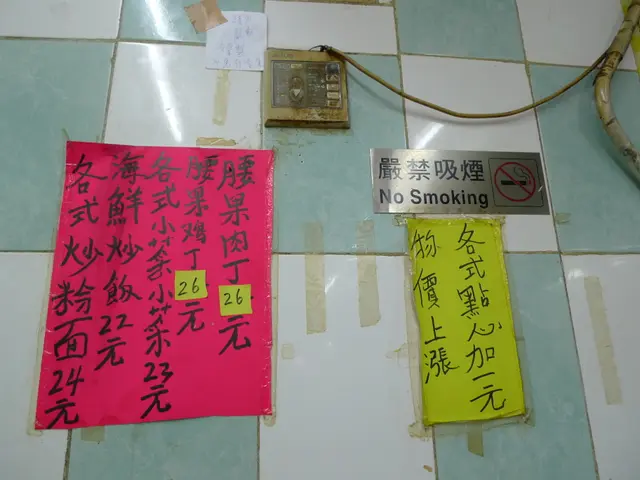 腰果肉丁26元
腰果鸡丁26元
各式小菜小菜23元
海鮮炒飯22元
各式炒粉面24元
嚴禁吸煙
No Smoking
各式點心加一元
物價上漲